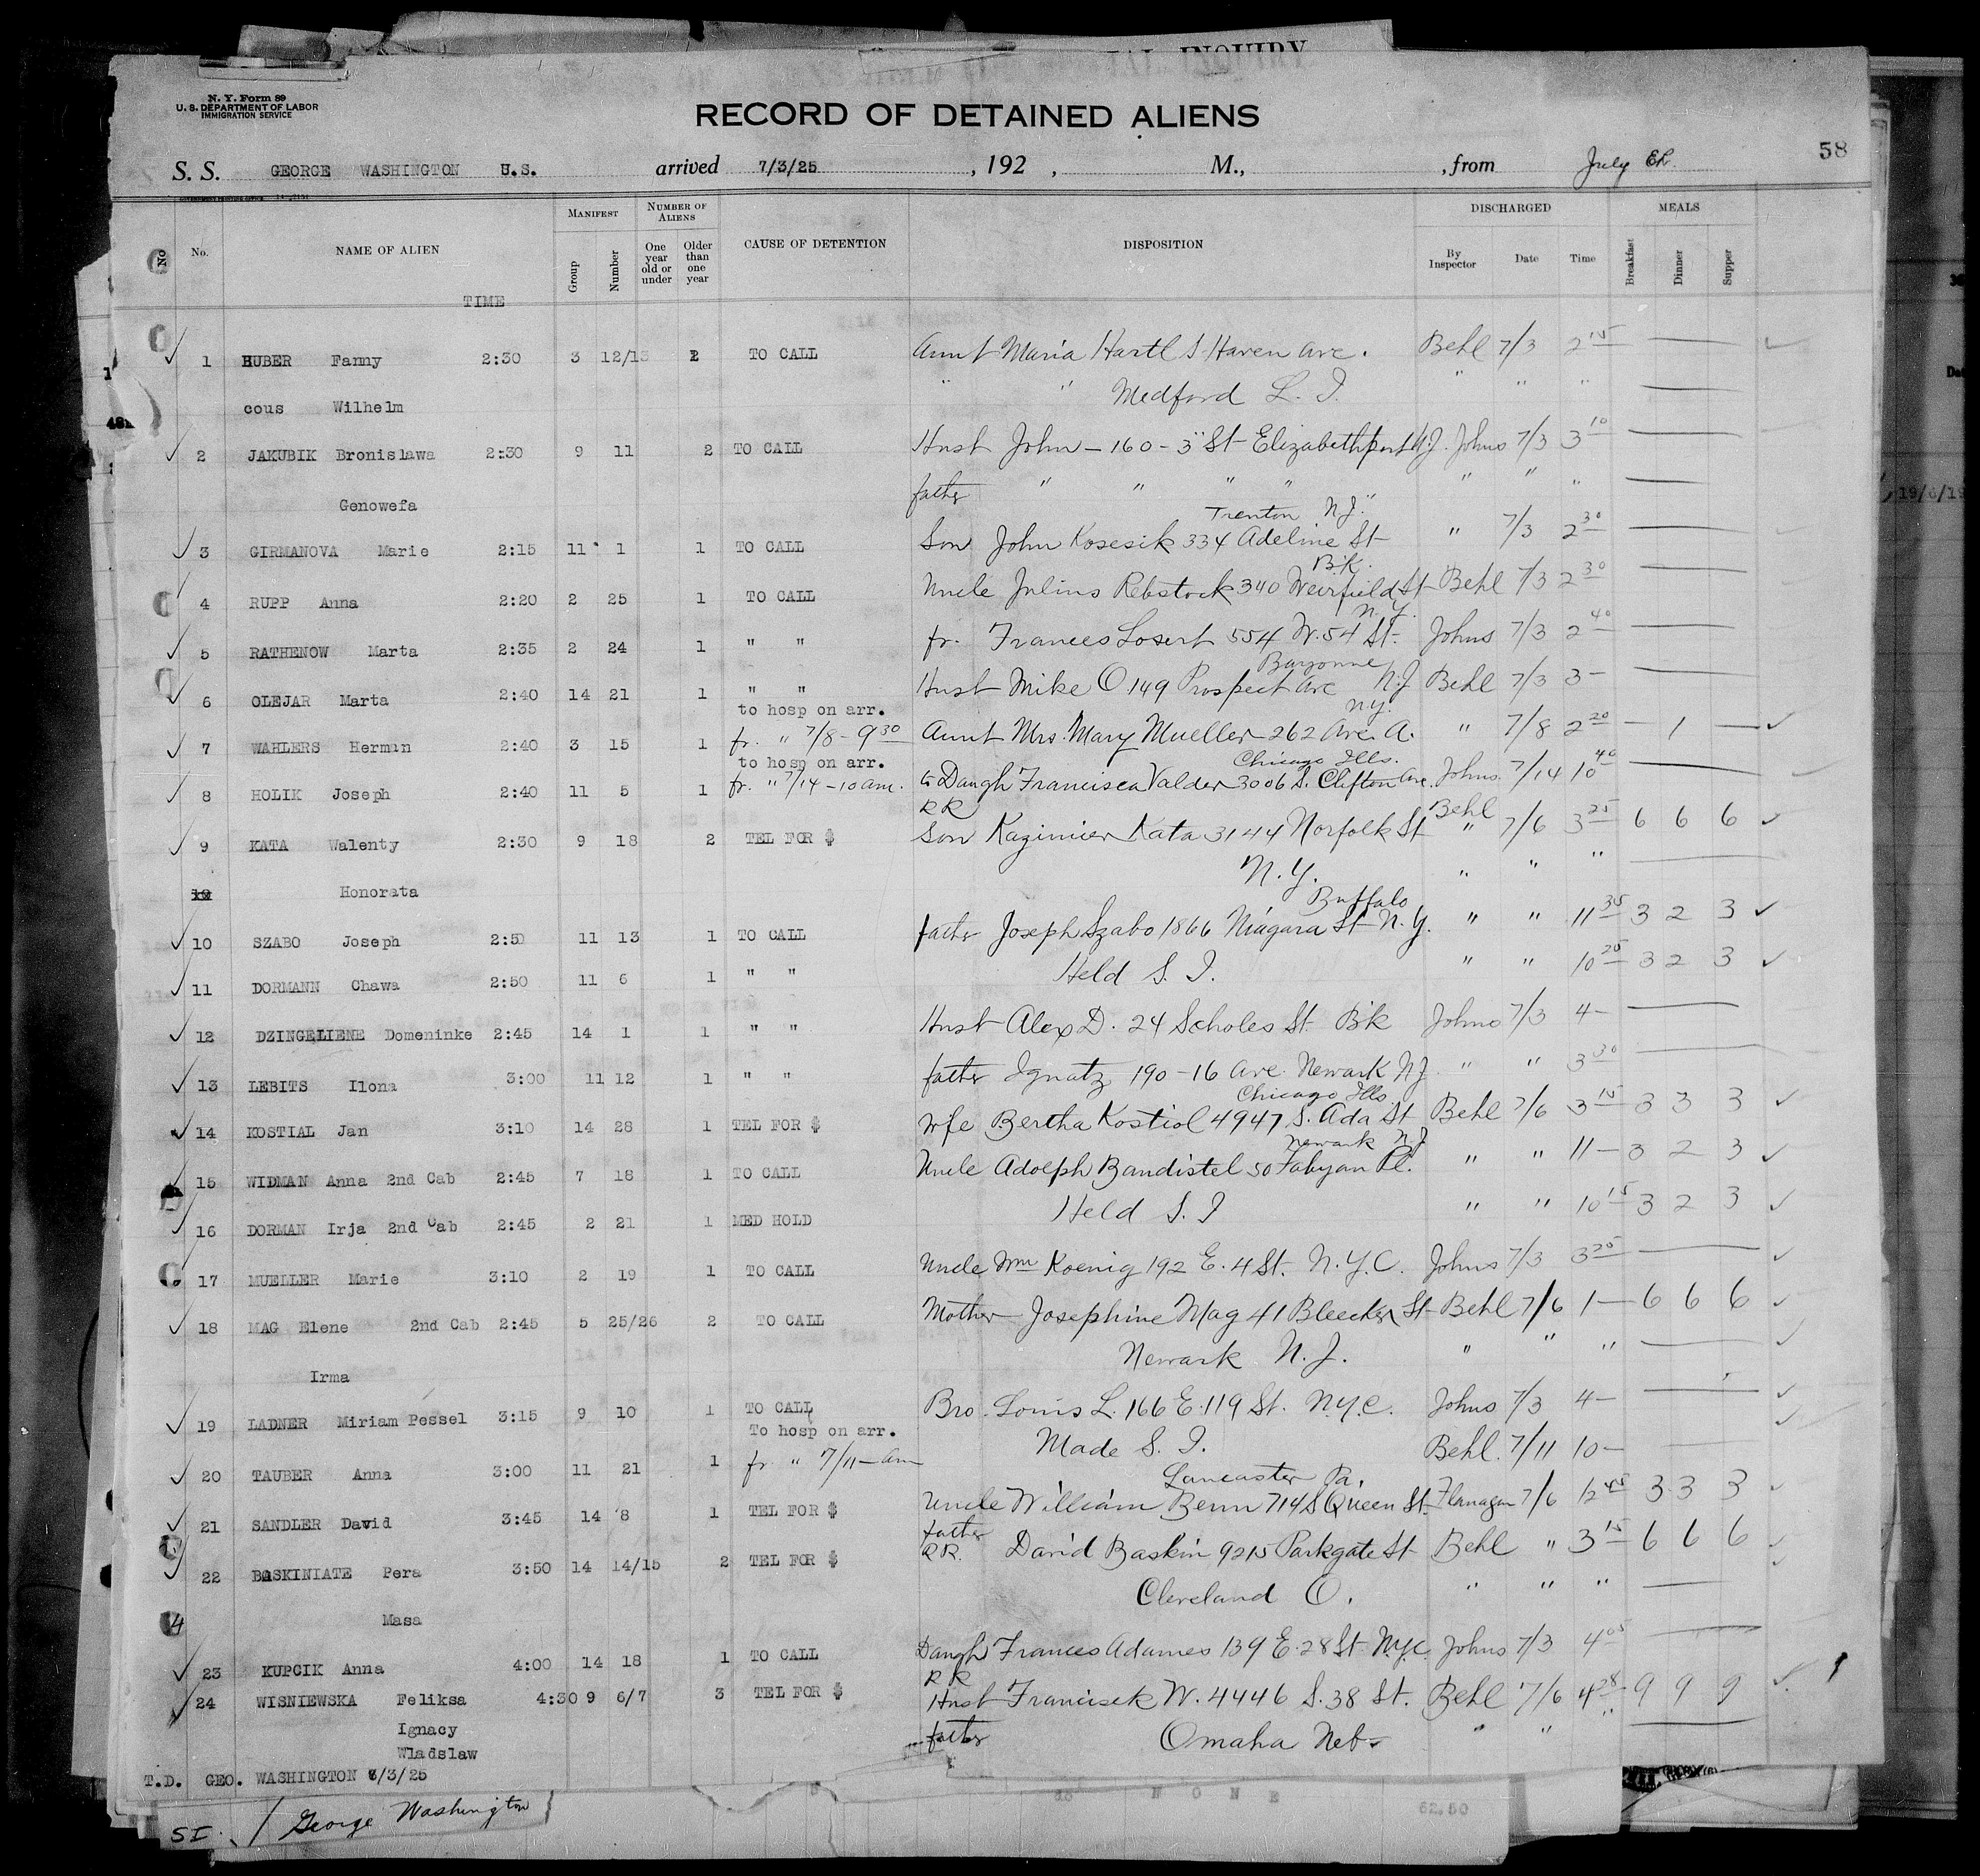 SPECIAL INQUIRY
N. Y. Form 89
U. S. DEPARTMENT OF LABOR
IMMIGRATION SERVICE
RECORD OF DETAINED ALIENS
58
S. S. GEORGE WASHINGTON U.S. arrived 7/3/25, 192 , M., , from July
No No. NAME OF ALIEN TIME MANIFEST Group Number NUMBER OF ALIENS One year old or under Older than one year CAUSE OF DETENTION DISPOSITION DISCHARGED By Inspector Date Time MEALS Breakfast Dinner Supper
1 HUBER Fanny 2:30 3 12/13 2 TO CALL Aunt Maria Hartl S Haven Ave. Behl 7/3 2 15
cous Wilhelm " " Medford L. I. " " "
2 JAKUBIK Bronislawa 2:30 9 11 2 TO CALL Husb John – 160 – 3" St Elizabethport N.J. Johns 7/3 3 10
Genowefa father " " " " " " "
Trenton N.J.
3 GIRMANOVA Marie 2:15 11 1 1 TO CALL Son John Kosesik 334 Adeline St " 7/3 2 30
B'k.
4 RUPP Anna 2:20 2 25 1 TO CALL Uncle Julius Rebstock 340 Weirfield St Behl 7/3 2 30
N.Y.
5 RATHENOW Marta 2:35 2 24 1 " " fr. Frances Losert 554 W. 54 St. Johns 7/3 2 40
Bayonne
6 OLEJAR Marta 2:40 14 21 1 " " Husb Mike O 149 Prospect Ave N.J Behl 7/3 3 –
to hosp on arr. N.Y.
7 WAHLERS Herman 2:40 3 15 1 fr. " 7/8 – 9 30 Aunt Mrs. Mary Mueller 262 Ave. A. " 7/8 2 20 – 1 –
to hosp on arr. Chicago Ills.
8 HOLIK Joseph 2:40 11 5 1 fr. " 7/14 – 10 am. to Daugh Francisca Valder 3006 S. Clifton Ave. Johns 7/14 10 40
RR Behl
9 KATA Walenty 2:30 9 18 2 TEL FOR $ Son Kazimier Kata 3144 Norfolk St " 7/6 3 25 6 6 6
10 Honorata N.Y. " " "
Buffalo
10 SZABO Joseph 2:50 11 13 1 TO CALL father Joseph Szabo 1866 Niagara St N.Y. " " 11 35 3 2 3
11 DORMANN Chawa 2:50 11 6 1 " " Held S. I. " " 10 25 3 2 3
12 DZINGELIENE Domeninke 2:45 14 1 1 " " Husb Alex D. 24 Scholes St B'k Johns 7/3 4 –
13 LEBITS Ilona 3:00 11 12 1 " " father Ignatz 190 – 16 Ave. Newark N.J. " " 3 30
Chicago Ills
14 KOSTIAL Jan 3:10 14 28 1 TEL FOR $ Wife Bertha Kostiol 4947 S. Ada St Behl 7/6 3 15 3 3 3
Newark N.J
15 WIDMAN Anna 2nd Cab 2:45 7 18 1 TO CALL Uncle Adolph Bandistel 50 Fabyan Pl. " " 11 – 3 2 3
16 DORMAN Irja 2nd Cab 2:45 2 21 1 MED HOLD Held S. I " " 10 15 3 2 3
17 MUELLER Marie 3:10 2 19 1 TO CALL Uncle Wm Koenig 192 E. 4 St. N.Y.C. Johns 7/3 3 25
18 MAG Elene 2nd Cab 2:45 5 25/26 2 TO CALL Mother Josephine Mag 41 Bleecker St Behl 7/6 1 – 6 6 6
Irma Newark N.J. " " "
19 LADNER Miriam Pessel 3:15 9 10 1 TO CALL Bro. Louis L. 166 E. 119 St. N.Y.C. Johns 7/3 4 –
To hosp on arr.
20 TAUBER Anna 3:00 11 21 1 fr. " 7/11 – am Made S. I. Behl. 7/11 10 –
Lancaster Pa.
21 SANDLER David 3:45 14 8 1 TEL FOR $ Uncle William Benn 714 S Queen St. Flanagan 7/6 12 45 3 3 3
father
22 BASKINIATE Pera 3:50 14 14/15 2 TEL FOR $ RR. David Baskin 9215 Parkgate St Behl " 3 15 6 6 6
Masa Cleveland O. " " "
23 KUPCIK Anna 4:00 14 18 1 TO CALL Daugh Frances Adames 139 E. 28 St N.Y.C. Johns 7/3 4 05
RR
24 WISNIEWSKA Feliksa 4:30 9 6/7 3 TEL FOR $ Husb Franciszek W. 4446 S. 38 St. Behl 7/6 4 28 9 9 9
Ignacy father Omaha Neb " " "
Wladslaw
T.D. GEO. WASHINGTON 7/3/25
SI. / George Washington
N O N E
62.50